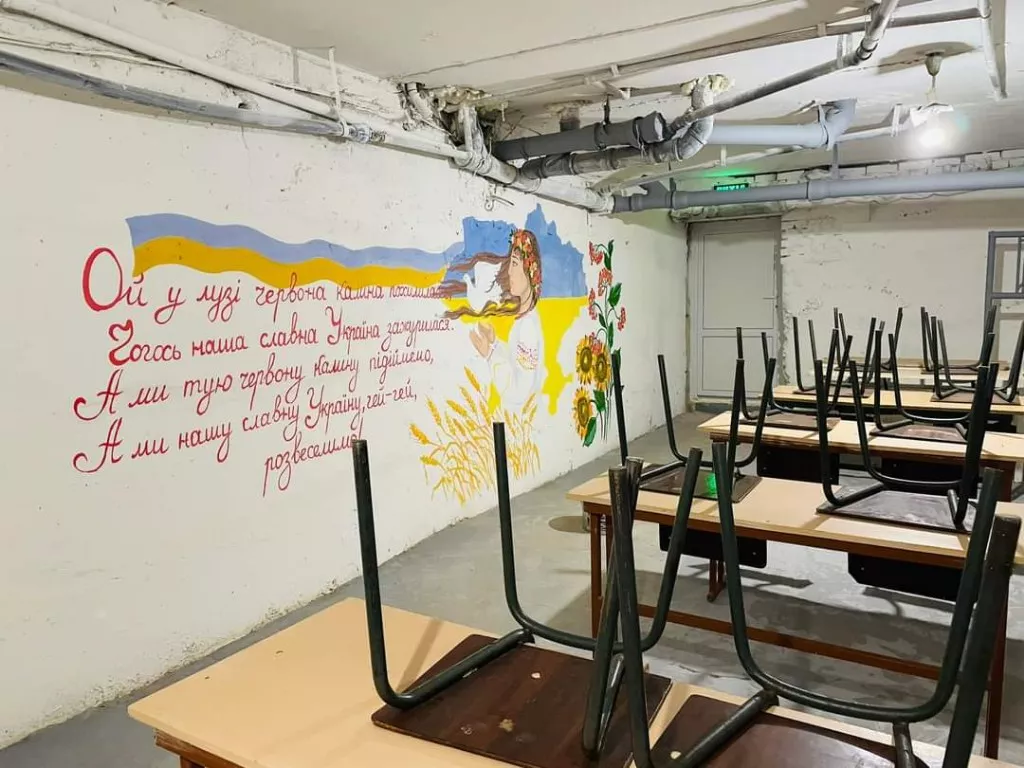 Ой у лузі червона калина похилилася,
Чогось наша славна Україна зажурилася.
А ми тую червону калину підіймемо,
А ми нашу славну Україну, гей-гей,
розвеселимо